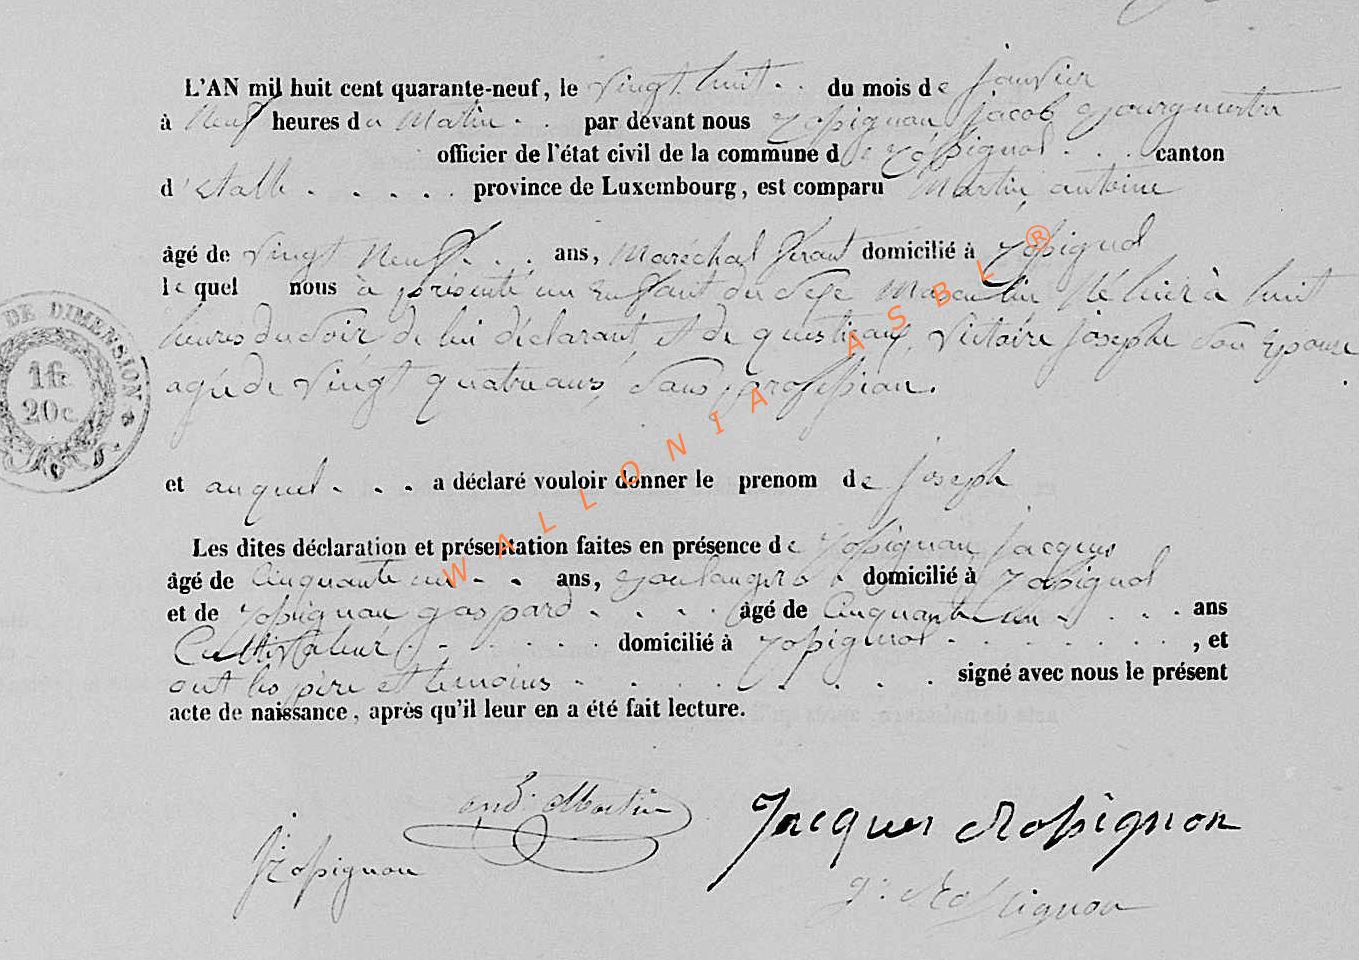 L'AN mil huit cent quarante-neuf, le vingt huit . . du mois de janvier
à neuf heures du Matin . . par devant nous Rossignon jacob Bourgmestre
officier de l'état civil de la commune de Rossignol . . . canton
d'Etalle . . . . . province de Luxembourg, est comparu Martin, antoine
âgé de vingt neuf . . . ans, Maréchal ferant domicilié à Rossignol
le quel nous a présenté un enfant du sexe Masculin Né hier à huit
heures du soir de lui déclarant et de Victoire josephe son Epouse
agée de vingt quatre ans, sans profession.
DE DIMENSION
1 fr.
20 c.
et auquel . . . a déclaré vouloir donner le prenom de joseph
Les dites déclaration et présentation faites en présence de Rossignon jacques
âgé de Cinquante un . . ans, Boulanger . . domicilié à Rossignol
et de Rossignon gaspard . . . . âgé de Cinquante un . . . . ans
Cultivateur . . . . . . domicilié à Rossignol . . . . . . . . , et
ont les père et temoins . . . . . . . . signé avec nous le présent
acte de naissance, après qu'il leur en a été fait lecture.
Martin
Jacques Rossignon
J Rossignon
g. Rossignon
WALLONIA ASBL ®